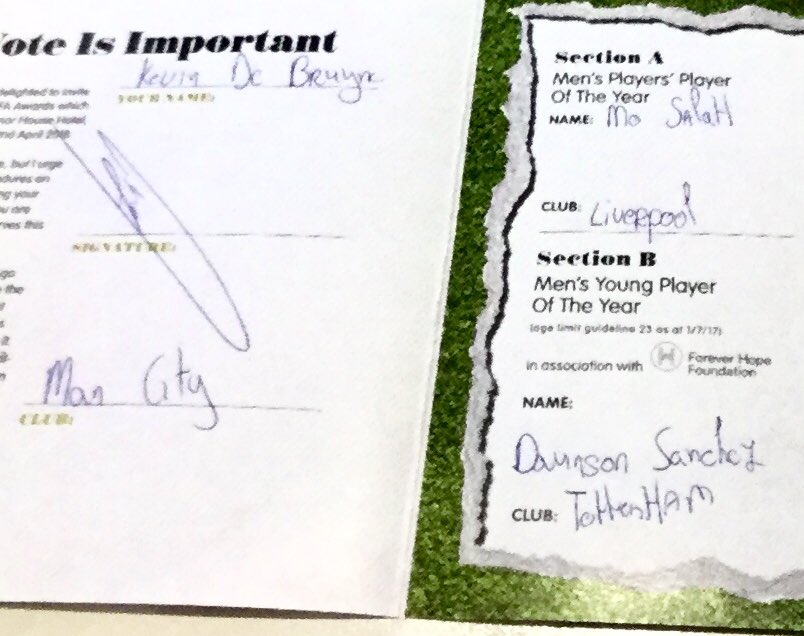 ote Is Important
Kevin De Bruyne
YOUR NAME:
delighted to invite
FA Awards which
nor House Hotel,
nd April 2018
e, but I urge
dures on
ng your
ou are
rves this
SIGNATURE:
go
the
it
Man City
CLUB:
Section A
Men's Players' Player
Of The Year
NAME: Mo Salah
CLUB: Liverpool
Section B
Men's Young Player
Of The Year
(age limit guideline 23 as at 1/7/17)
in association with Forever Hope
Foundation
NAME:
Davinson Sanchez
CLUB: TottenHAM